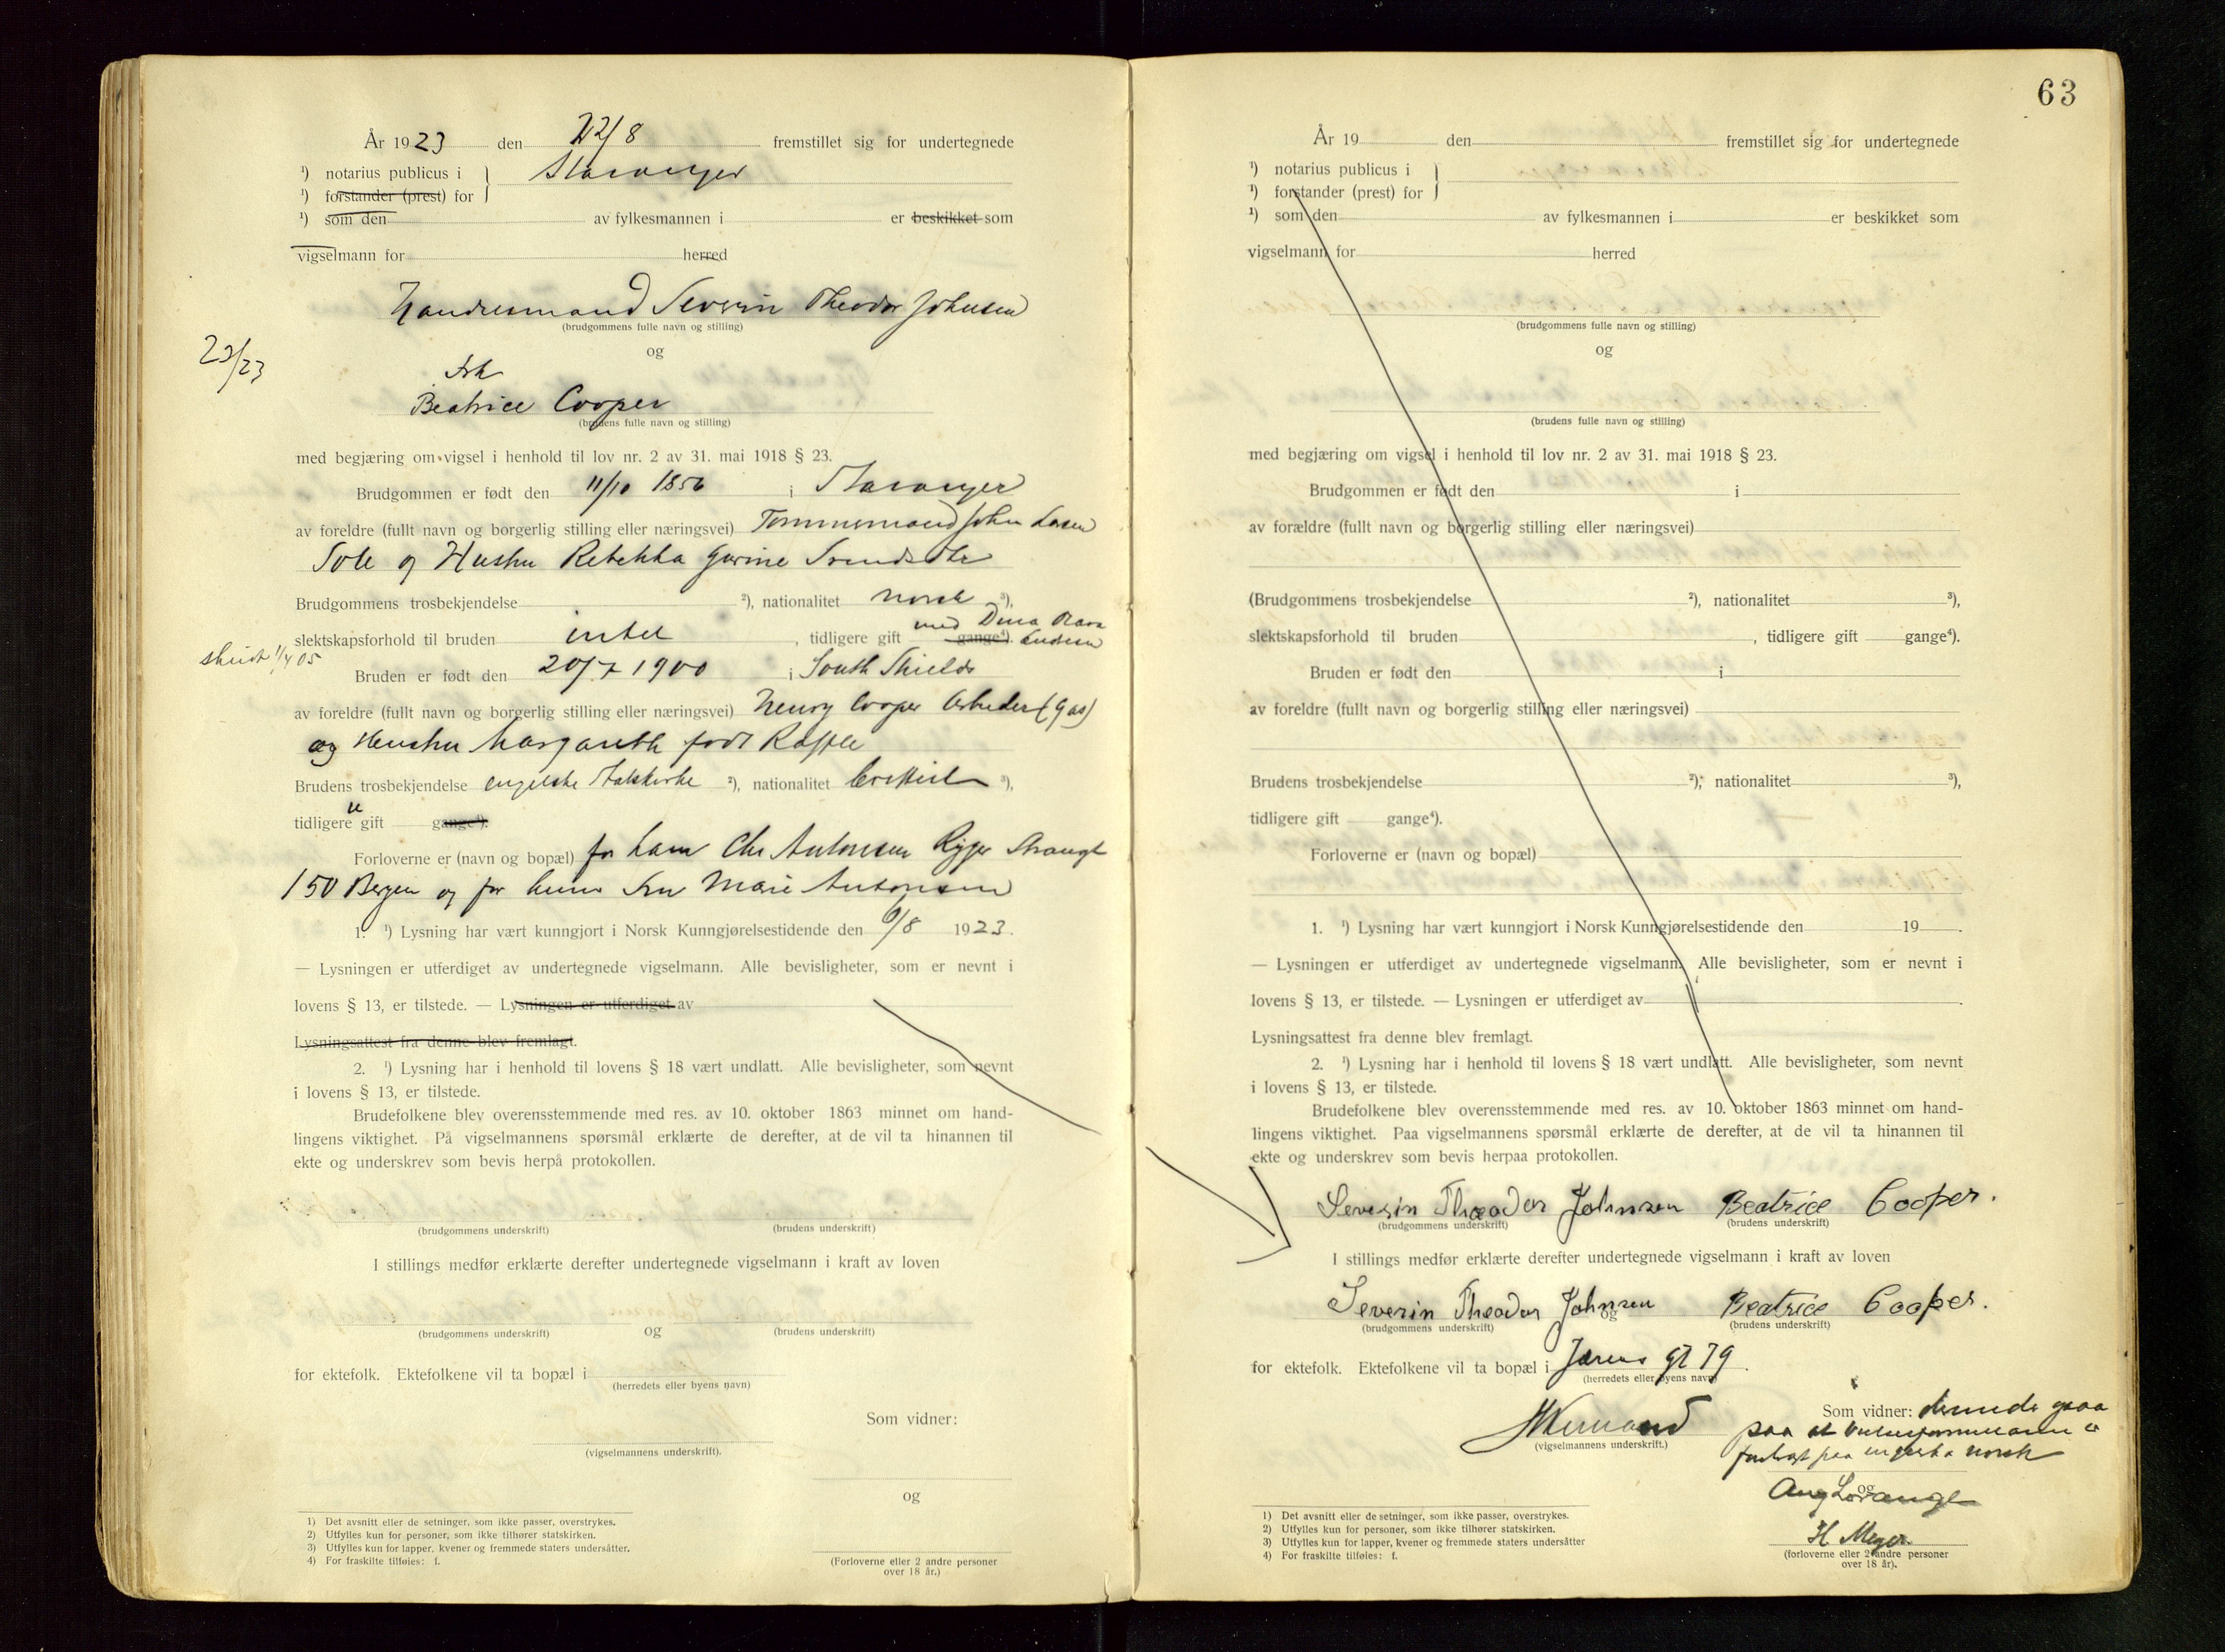 År 1923 den 22/8 fremstillet sig for undertegnede
¹) notarius publicus i } Stavanger
¹) forstander (prest) for
¹) som den av fylkesmannen i er beskikket som
vigselmann for herred
Handelsmand Severin Theodor Johnsen
(brudgommens fulle navn og stilling)
23/23
og
Frk
Beatrice Cooper
(brudens fulle navn og stilling)
med begjæring om vigsel i henhold til lov nr. 2 av 31. mai 1918 § 23.
Brudgommen er født den 11/10 1856 i Stavanger
av foreldre (fullt navn og borgerlig stilling eller næringsvei) Tømmermand John Larsen
Sole og Hustru Rebekka Gurine Svendsdtr
Brudgommens trosbekjendelse ²), nationalitet norsk ³),
slektskapsforhold til bruden intet, tidligere gift gange⁴). med Dina
skilt 11/4 05
Bruden er født den 20/7 1900 i South Shields
av foreldre (fullt navn og borgerlig stilling eller næringsvei) Henry Cooper Arbeider (Gas)
og Hustru Margareth født
Brudens trosbekjendelse engelske Statskirke ²), nationalitet brittisk ³),
tidligere gift gange⁴).
Forloverne er (navn og bopæl) for ham Chr Antonsen Rigger Strangt
150 Bergen og for hende Fru Marie Antonsen
1. ¹) Lysning har vært kunngjort i Norsk Kunngjørelsestidende den 6/8 1923.
— Lysningen er utferdiget av undertegnede vigselmann. Alle bevisligheter, som er nevnt i
lovens § 13, er tilstede. — Lysningen er utferdiget av
Lysningsattest fra denne blev fremlagt.
2. ¹) Lysning har i henhold til lovens § 18 vært undlatt. Alle bevisligheter, som nevnt
i lovens § 13, er tilstede.
Brudefolkene blev overensstemmende med res. av 10. oktober 1863 minnet om hand-
lingens viktighet. På vigselmannens spørsmål erklærte de derefter, at de vil ta hinannen til
ekte og underskrev som bevis herpå protokollen.
(brudgommens underskrift) (brudens underskrift)
I stillings medfør erklærte derefter undertegnede vigselmann i kraft av loven
og
(brudgommens underskrift) (brudens underskrift)
for ektefolk. Ektefolkene vil ta bopæl i
(herredets eller byens navn)
Som vidner:
(vigselmannens underskrift).
og
1) Det avsnitt eller de setninger, som ikke passer, overstrykes.
2) Utfylles kun for personer, som ikke tilhører statskirken.
3) Utfylles kun for lapper, kvener og fremmede staters undersåtter.
4) For fraskilte tilføies: f.
(Forloverne eller 2 andre personer
over 18 år.)
63
År 19 den fremstillet sig for undertegnede
¹) notarius publicus i }
¹) forstander (prest) for
¹) som den av fylkesmannen i er beskikket som
vigselmann for herred
(brudgommens fulle navn og stilling)
og
(brudens fulle navn og stilling)
med begjæring om vigsel i henhold til lov nr. 2 av 31. mai 1918 § 23.
Brudgommen er født den i
av forældre (fullt navn og borgerlig stilling eller næringsvei)
(Brudgommens trosbekjendelse ²), nationalitet ³),
slektskapsforhold til bruden , tidligere gift gange⁴).
Bruden er født den i
av foreldre (fullt navn og borgerlig stilling eller næringsvei)
Brudens trosbekjendelse ²); nationalitet ³),
tidligere gift gange⁴).
Forloverne er (navn og bopæl)
1. ¹) Lysning har vært kunngjort i Norsk Kunngjørelsestidende den 19 .
— Lysningen er utferdiget av undertegnede vigselmann. Alle bevisligheter, som er nevnt i
lovens § 13, er tilstede. — Lysningen er utferdiget av .
Lysningsattest fra denne blev fremlagt.
2. ¹) Lysning har i henhold til lovens § 18 vært undlatt. Alle bevisligheter, som nevnt
i lovens § 13, er tilstede.
Brudefolkene blev overensstemmende med res. av 10. oktober 1863 minnet om hand-
lingens viktighet. Paa vigselmannens spørsmål erklærte de derefter, at de vil ta hinannen til
ekte og underskrev som bevis herpaa protokollen.
Severin Theodor Johnsen Beatrice Cooper.
(brudgommens underskrift) (brudens underskrift)
I stillings medfør erklærte derefter undertegnede vigselmann i kraft av loven
Severin Theodor Johnsen og Beatrice Cooper.
(brudgommens underskrift) (brudens underskrift)
for ektefolk. Ektefolkene vil ta bopæl i Jærens gt 79.
(herredets eller byens navn)
Som vidner:
paa at er
paa engelsk norsk
(vigselmannens underskrift.)
og
Aug Lorange
H Meyer.
1) Det avsnitt eller de setninger, som ikke passer, overstrykes.
2) Utfylles kun for personer, som ikke tilhører statskirken.
3) Utfylles kun for lapper, kvener og fremmede staters undersåtter
4) For fraskilte tilføies: f.
(forloverne eller 2 andre personer
over 18 år).